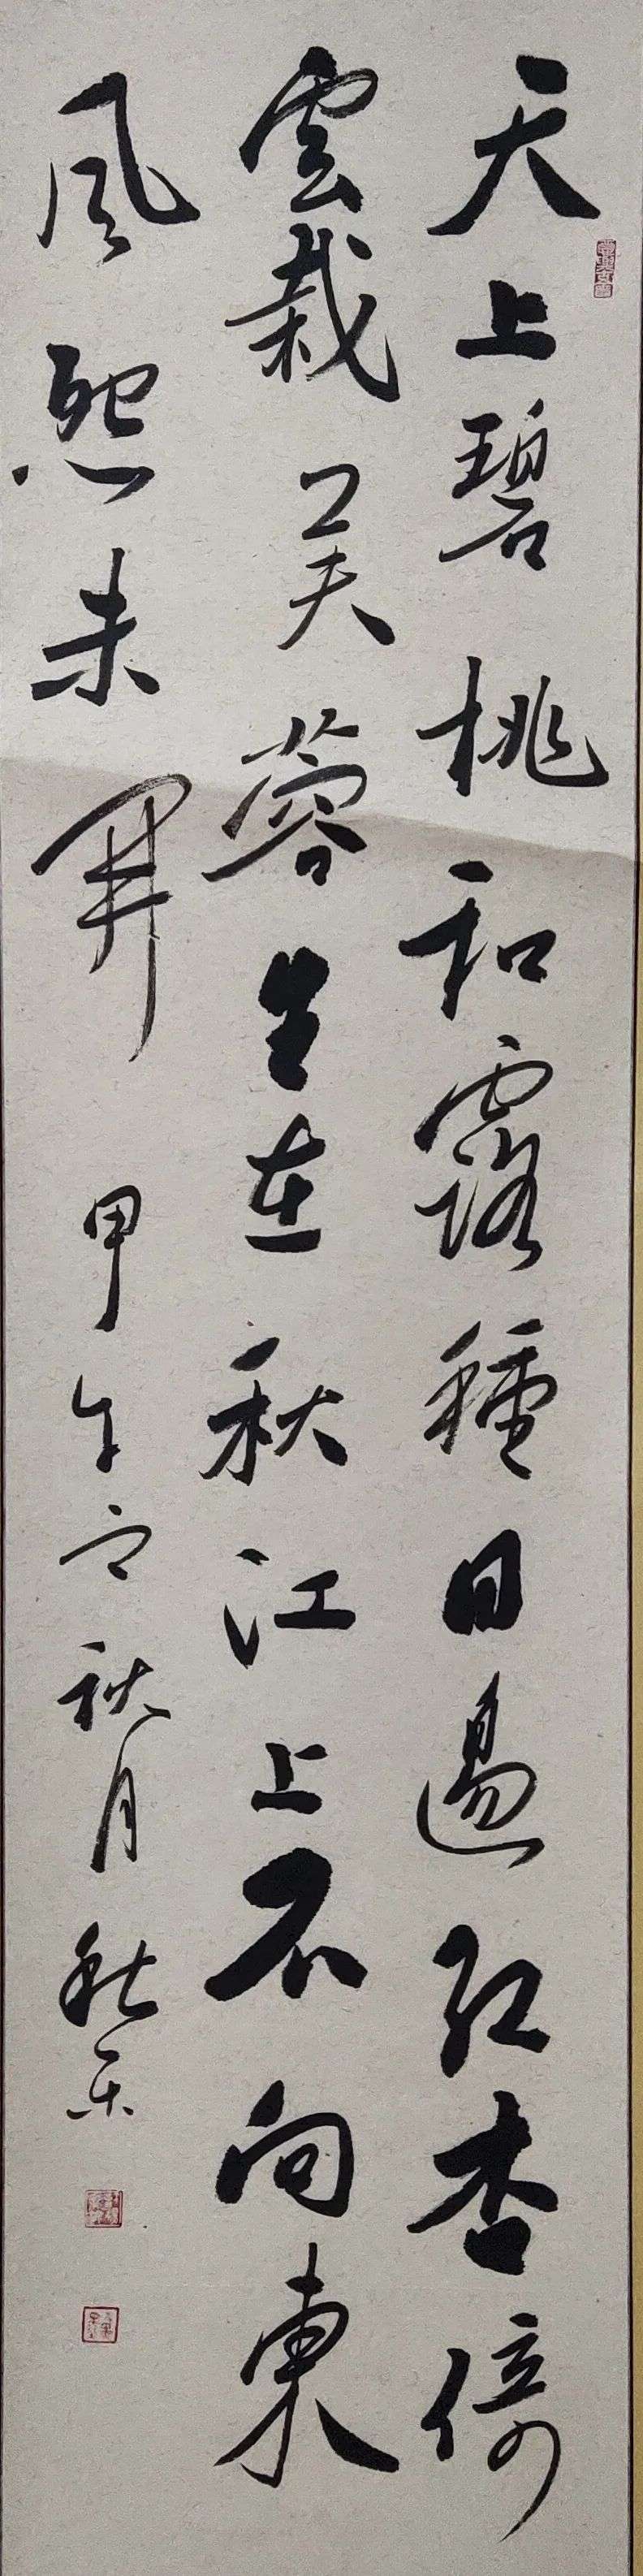 天上碧桃和露種日邊紅杏倚
雲栽芙蓉生在秋江上不向東
風怨未開 甲午之秋月